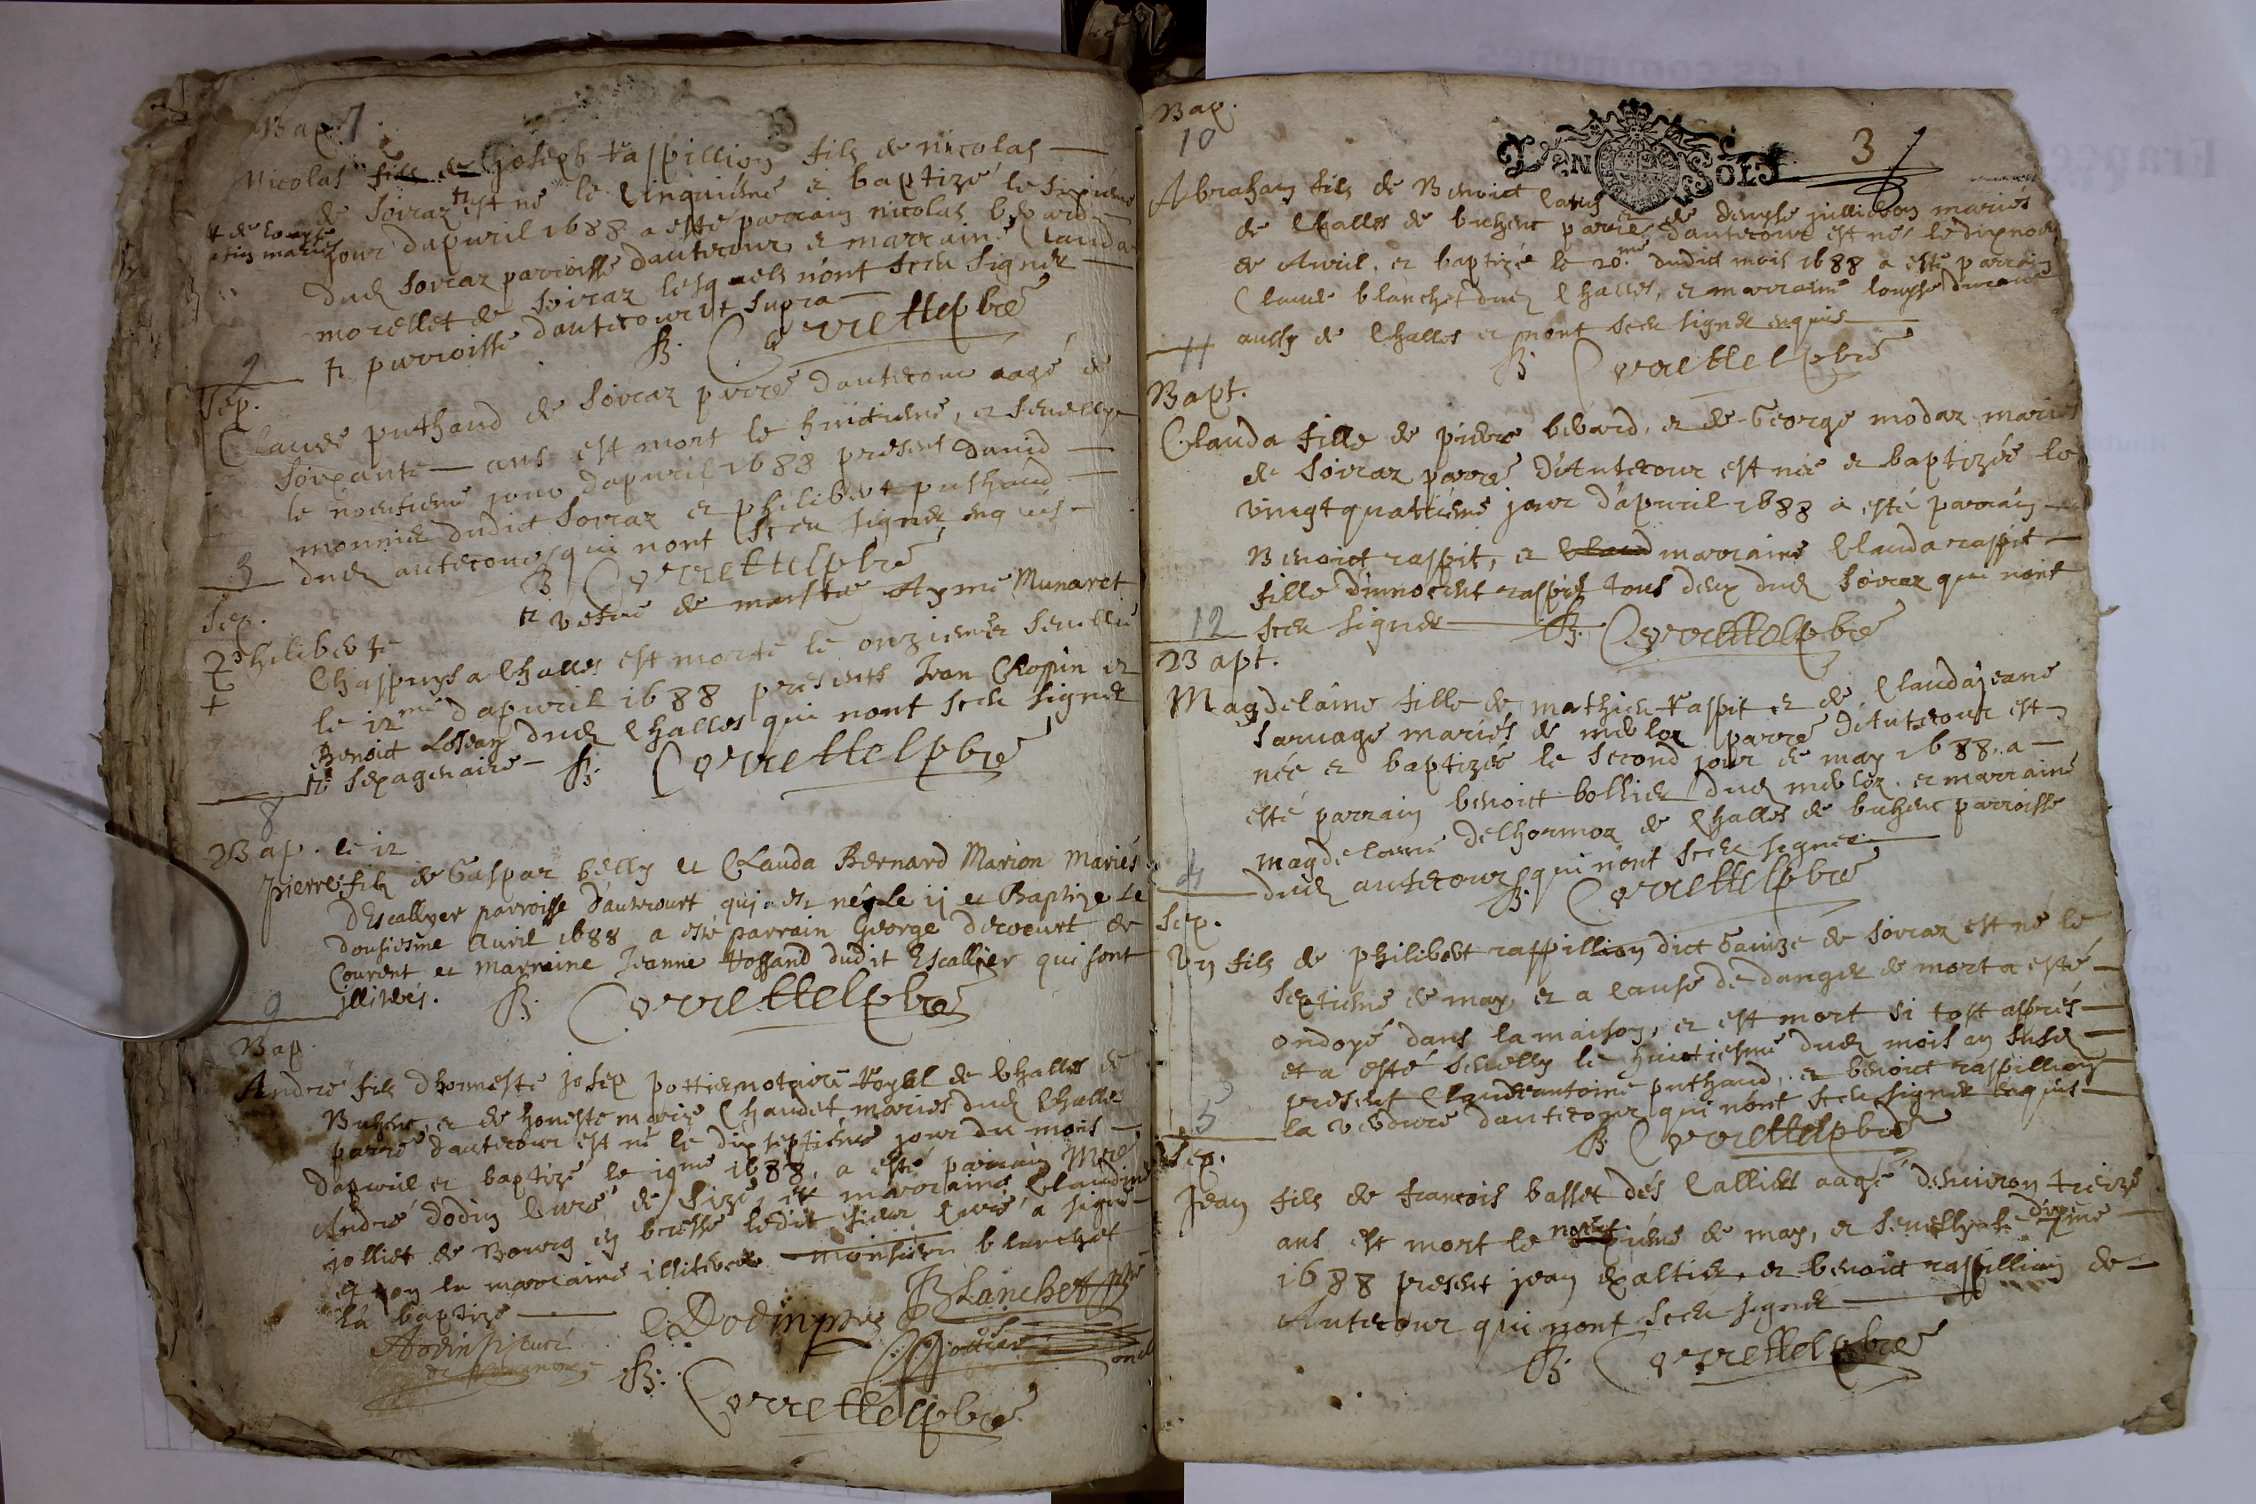 Bap. 7
Nicolas fils de Joseph Raspillion fils de nicolas
de Soiraz est né le cinquiéme et baptizé le sixiéme
jour dapvril 1688 a esté parrain nicolas bevard
dud Soiraz parroisse dautecour et marraine Clauda
morellet de Soiraz lesquels n'ont sceu signer
parroisse dautecour ut supra
B. Correttel pbre
2
Sep.
Claude puthaud de Soiraz parre dautecour aagé de
soixante ans est mort le huictieme, et sevelly
le neufieme jour dapvril 1688 present david
monnier dudict Soiraz et philibert puthaud
dud autecour qui nont sceu signer enquis
B. Correttel pbre
3
Sep.
Philiberte
vefue de Aymé Munaret
Chaspuys a Challes est morte le onziemer sevellie
le 12me dapvril 1688 presents Jean Chossin et
Benoict dud Challes qui nont sceu signer
sexagenaire
B. Correttel pbre
8
Bap. le 12
pierre filz de Gaspar belly et Clauda Bernard Marion mariés
dEscallyer parroisse d'autecourt qui est né le ij et Baptizé le
dousiesme avril 1688 a esté parrain George decocurt de
Courent et marraine Jeanne dudit Escallier qui sont
illiterés.
B. Correttel pbre
9
Bap.
André fils dhonneste josep pottier notaire Royal de Challes de
Buhenc, et de honeste marie Chaudet mariés dud Challes
parre dautecour est né le dix septiéme jour du mois
dapvril et baptizé le 19me 1688, a esté parrain Mre
André dodin curé de size, et marraine Claudine
jolliet de Bourg en bresse ledit sieur curé a signé
et non la marraine illiterée monsieur blanchet
la baptizé
Blanchet ptre
Dodin ptre
Pottier
B. Correttel pbre
Bap.
10
DEN SOLS
3
Abraham fils de Benoict et de denyse jullieron mariés
de Challes de buhenc parre dautecour est né le dixneuf
de Avril, et baptizé le 20me dudict mois 1688 a esté parrain
Claude blanchet dud Challes, et marraine louyse
aussy de Challes et n'ont sceu signer enquis
B. Correttel pbre
11
Bapt.
Clauda fille de pierre bevard, et de George modaz mariés
de Soiraz parre d'Autecour est née et baptizée le
vingtquattiéme jour d'apvril 1688 a esté parrain
Benoict raspit, et Claud marraine Clauda raspit
fille d'innocent raspit tous deux dud Soiraz qui n'ont
sceu signer
B. Correttel pbre
12
Bapt.
Magdelaine fille de mathieu Raspit et de Claudajeane
Sarvage mariés de parre d'Autecour est
née et baptizée le second jour de may 1688. a
esté parrain benoict bollier dud et marraine
magdelaine delhormoz de Challes de buhenc parroisse
dud autecour, qui n'ont sceu signer
B. Correttel pbre
4
Sep.
Un fils de philibert raspillion dict Gavize de Soiraz est né le
septieme de may, et a cause de danger de mort a esté
ondoyé dans la maison, et est mort si tost aprés
et a esté sevelly le huictiesme dud mois an susd
present Claudeantoine puthaud, et benoict raspillion
la vevdure dautecour qui n'ont sceu signer enquis
B. Correttel pbre
5
Sep.
Jean fils de francois basset des Calliers aagé denviron treize
ans est mort le de may, et sevelly le dixme
1688 present jean et benoict raspillion de
Autecour qui nont sceu signer
B. Correttel pbre